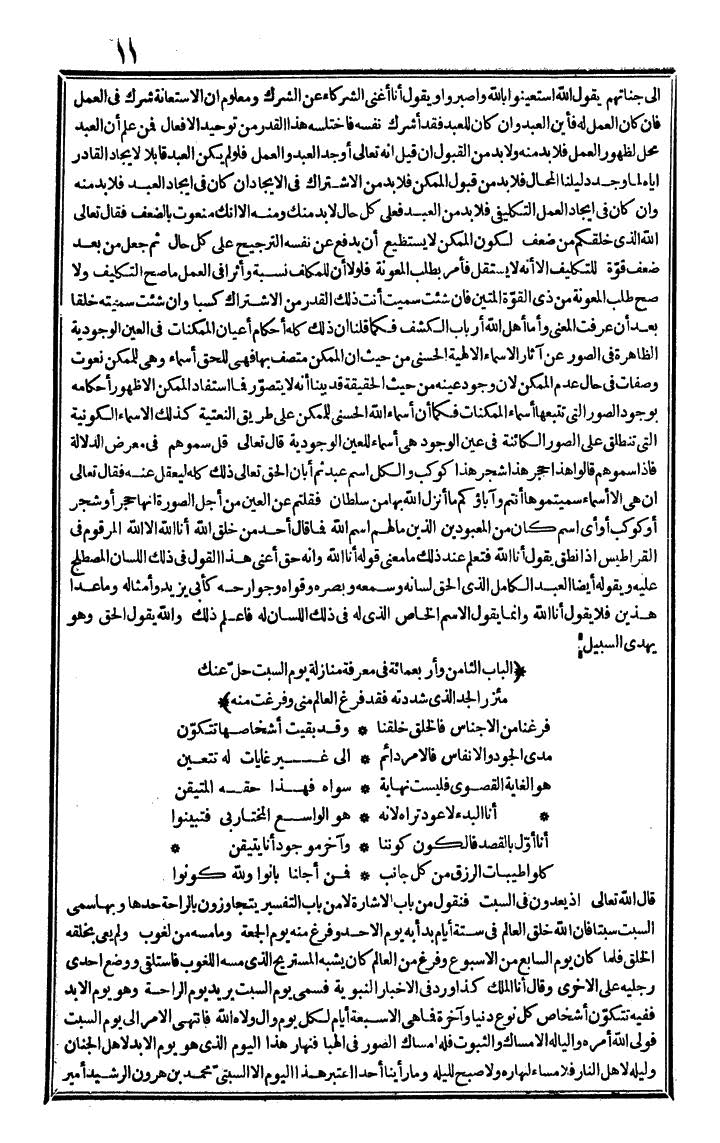 ١١
الى جناتهم يقول الله استعينوا بالله واصبروا ويقول أنا أغنى الشركاء عن الشرك ومعلوم ان الاستعانة شرك فى العمل
فان كان العمل له فأين العبد وان كان للعبد فقد أشرك نفسه فاختلسه هذا القدر من توحيد الافعال فمن علم أن العبد
محل لظهور العمل فلا بد منه ولا بد من القبول ان قيل انه تعالى أوجد العبد والعمل فلو لم يكن العبد قابلا لايجاد القادر
اياه لما وجد دليلنا المحال فلا بد من قبول الممكن فلا بد من الاشتراك فى الايجاد ان كان فى ايجاد العبد فلا بد منه
وان كان فى ايجاد العمل التكليفى فلا بد من العبد فعلى كل حال لا بد منك ومنه الا انك منعوت بالضعف فقال تعالى
الله الذى خلقكم من ضعف لكون الممكن لا يستطيع أن يدفع عن نفسه الترجيح على كل حال ثم جعل من بعد
ضعف قوّة للتكليف الا أنه لا يستقل فأمر بطلب المعونة فلولا أن للمكلف نسبة وأثرا فى العمل ما صح التكليف ولا
صح طلب المعونة من ذى القوّة المتين فان شئت سميت أنت ذلك القدر من الاشتراك كسبا وان شئت سميته خلقا
بعد أن عرفت المعنى وأما أهل الله أرباب الكشف فكما قلنا ان ذلك كله أحكام أعيان الممكنات فى العين الوجودية
الظاهرة فى الصور عن آثار الاسماء الالهية الحسنى من حيث ان الممكن متصف بها فهى للحق أسماء وهى للممكن نعوت
وصفات فى حال عدم الممكن لان وجود عينه من حيث الحقيقة قد بينا أنه لا يتصوّر فما استفاد الممكن الا ظهور أحكامه
بوجود الصور التى تتبعها أسماء الممكنات فكما أن أسماء الله الحسنى للممكن على طريق النعتية كذلك الاسماء الكونية
التى تنطلق على الصور الكائنة فى عين الوجود هى أسماء للعين الوجودية قال تعالى قل سموهم فى معرض الدلالة
فاذا سموهم قالوا هذا حجر هذا شجر هذا كوكب والكل اسم عبد ثم أبان الحق تعالى ذلك كله ليعقل عنه فقال تعالى
ان هى الا أسماء سميتموها أنتم وآباؤكم ما أنزل الله بها من سلطان فقلتم عن العين من أجل الصورة انها حجر أو شجر
أو كوكب أو أى اسم كان من المعبودين الذين ما لهم اسم الله فما قال أحد من خلق الله أنا الله الا الله المرقوم فى
القراطيس اذا نطق يقول أنا الله فتعلم عند ذلك ما معنى قوله أنا الله وانه حق أعنى هذا القول فى ذلك اللسان المصطلح
عليه ويقوله أيضا العبد الكامل الذى الحق لسانه وسمعه وبصره وقواه وجوارحه كأبى يزيد وأمثاله وما عدا
هذين فلا يقول أنا الله وانما يقول الاسم الخاص الذى له فى ذلك اللسان له فاعلم ذلك والله يقول الحق وهو
يهدى السبيل
﴿الباب الثامن وأربعمائة فى معرفة منازلة يوم السبت حلّ عنك
مئزر الجد الذى شددته فقد فرغ العالم منى وفرغت منه﴾
فرغنا من الاجناس فالخلق خلقنا * وقد بقيت أشخاصها تتكوّن
مدى الجود والانفاس فالامر دائم * الى غير غايات له تتعين
هو الغاية القصوى فليست نهاية * سواه فهذا حقه المتيقن
* أنا البدء لا عود تراه لانه * هو الواسع المختار بى فتبينوا
أنا أوّل بالقصد فالكون كوننا * وآخر موجود أنا يتيقن *
كلوا طيبات الرزق من كل جانب * فمن أجلنا بانوا ولله كونوا
قال الله تعالى اذ يعدون فى السبت فنقول من باب الاشارة لا من باب التفسير يتجاوزون بالراحة حدها وبها سمى
السبت سبتا فان الله خلق العالم فى ستة أيام بدأ به يوم الاحد وفرغ منه يوم الجمعة وما مسه من لغوب ولم يعى بخلقه
الخلق فلما كان يوم السابع من الاسبوع وفرغ من العالم كان يشبه المستريح الذى مسه اللغوب فاستلقى ووضع احدى
رجليه على الاخرى وقال أنا الملك كذا ورد فى الاخبار النبوية فسمى يوم السبت يريد يوم الراحة وهو يوم الابد
ففيه تتكوّن أشخاص كل نوع دنيا وآخرة فما هى الا سبعة أيام لكل يوم وال ولاه الله فانتهى الامر الى يوم السبت
فولى الله أمره واليا له الامساك والثبوت فله امساك الصور فى الهبا فنهار هذا اليوم الذى هو يوم الابد لاهل الجنان
وليله لاهل النار فلا مساء لنهاره ولا صبح لليله وما رأينا أحدا اعتبر هذا اليوم الا السبتىّ محمد بن هرون الرشيد أمير